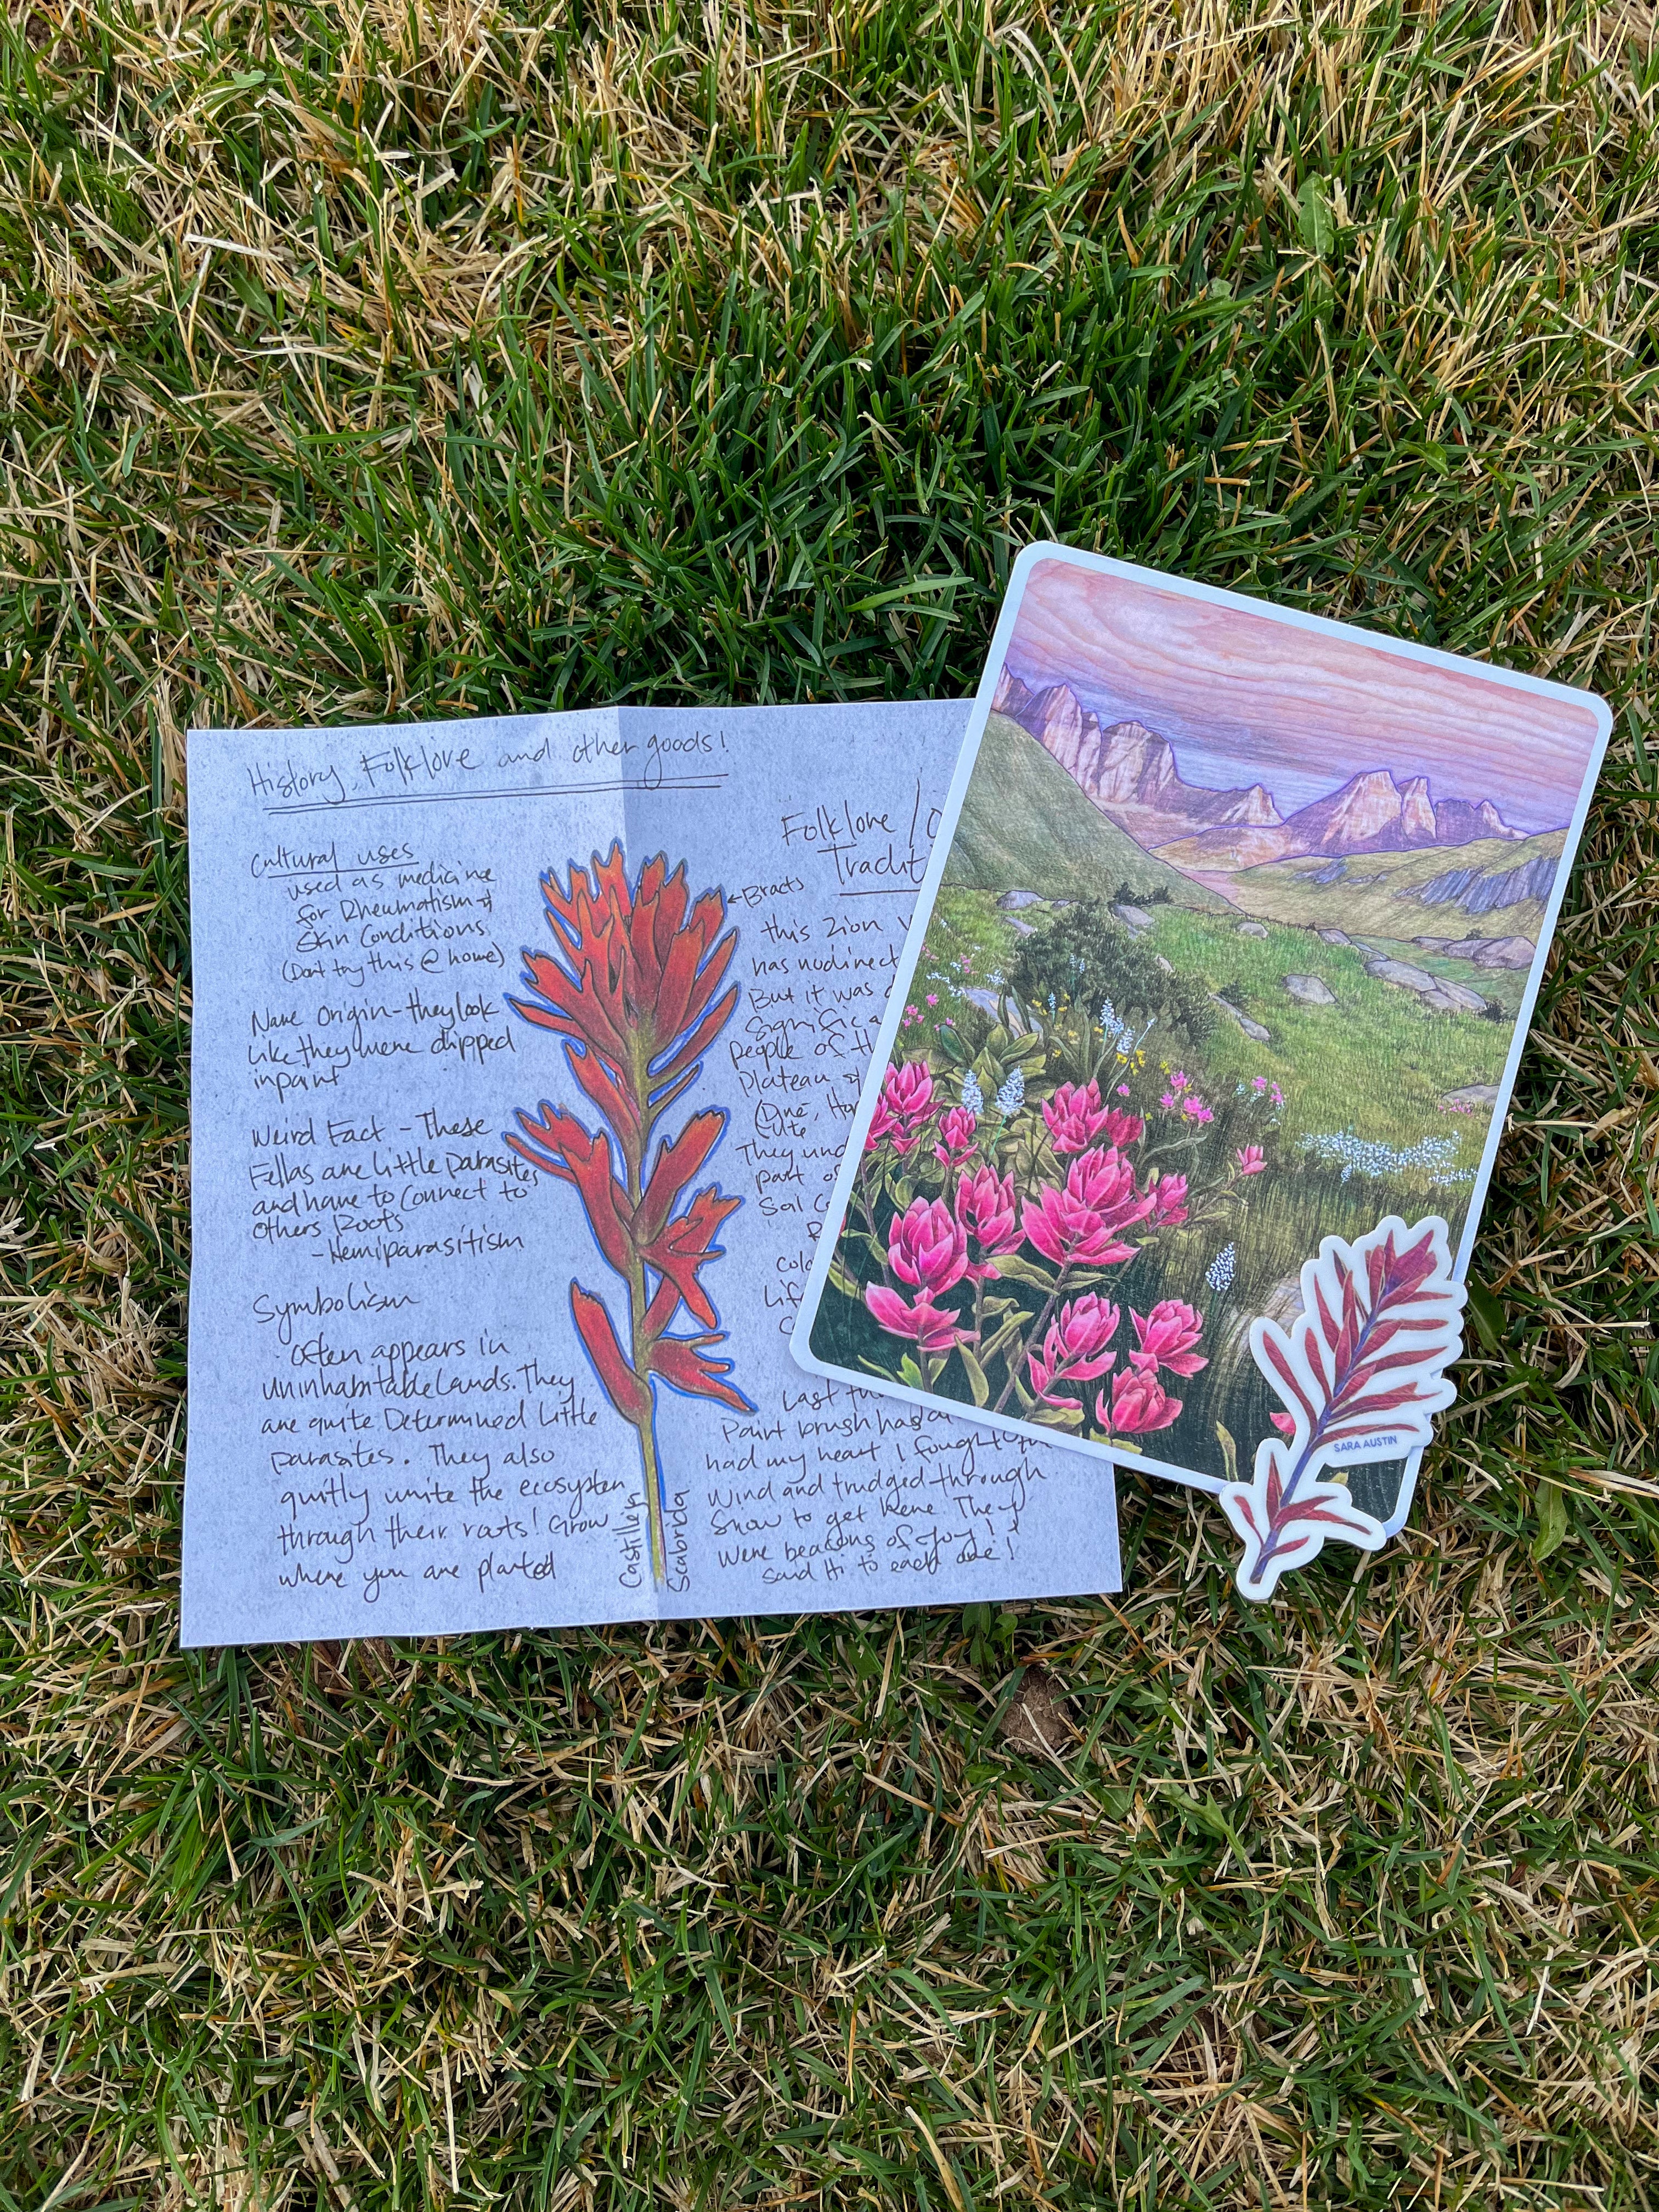 History, Folklore and other goods!
Cultural uses
used as medicine
for Rheumatism &
Skin Conditions
(Dont try this @ home)
Name Origin - they look
like they were dipped
in paint
Weird Fact - These
Fellas are little parasites
and have to connect to
others Roots
- Hemiparasitism
Symbolism
Often appears in
uninhabitable lands. They
are quite Determined little
parasites. They also
quitly unite the ecosystem
through their roots! Grow
where you are planted
Castilleja
Scabrida
← Bracts
Folklore /
Tradit
this Zion
has no direct
But it was
Signific
people of th
Plateau &
(Diné, Ho
Ute
They und
part of
Soil C
Colo
Lif
Last
Paint brush had
had my heart I fought
Wind and trudged through
Snow to get here. They
Were beacons of joy! I
said Hi to each one!
SARA AUSTIN